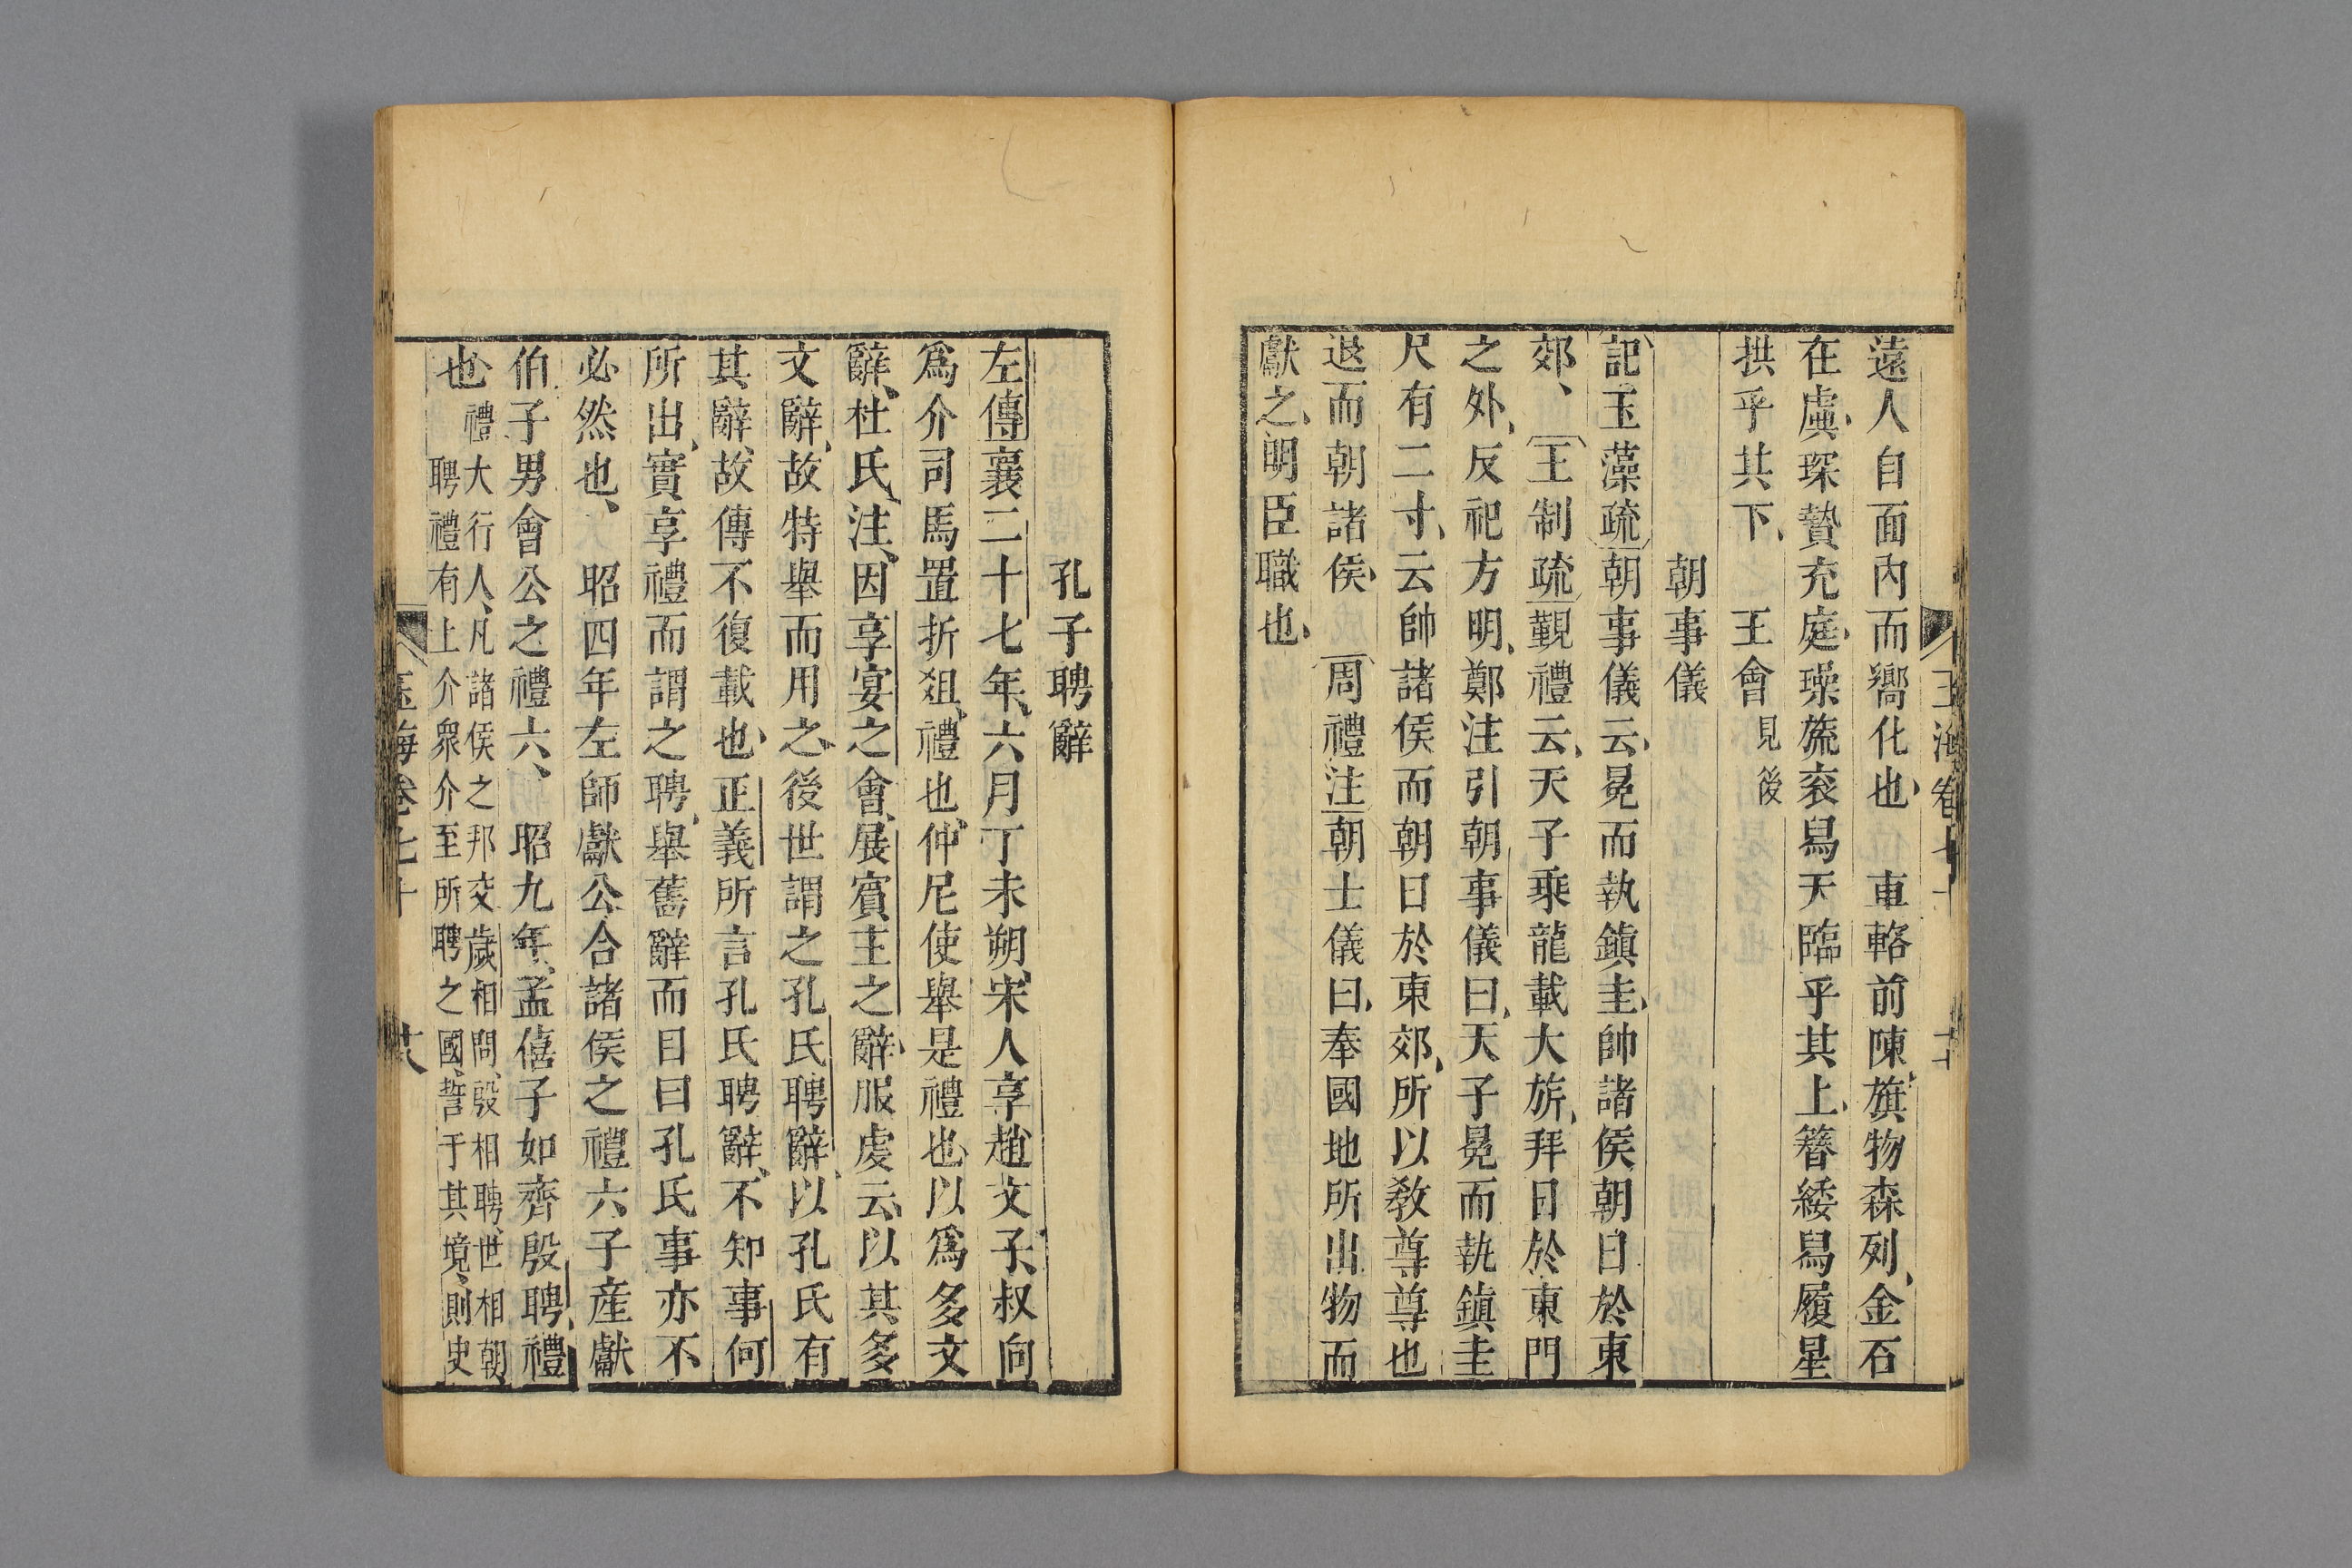 遠人自面內而嚮化也　車輅前陳、旗物森列、金石
在虡、琛贄充庭、璪旒衮舄天臨乎其上、簪緌舄履星
拱乎其下、　王會見後
朝事儀
記玉藻疏朝事儀云、冕而執鎮圭、帥諸侯朝日於東
郊、　王制疏覲禮云、天子乘龍載大旂、拜日於東門
之外、反祀方明、鄭注引朝事儀曰、天子冕而執鎮圭
尺有二寸、云帥諸侯而朝日於東郊、所以敎尊尊也
退而朝諸侯、　周禮注朝士儀曰、奉國地所出物而
獻之、明臣職也、
孔子聘辭
左傳襄二十七年、六月丁未朔、宋人享趙文子、叔向
爲介司馬置折俎、禮也、仲尼使舉是禮也、以爲多文
辭、杜氏注、因享宴之會、展賓主之辭、服虔云、以其多
文辭、故特舉而用之、後世謂之孔氏聘辭、以孔氏有
其辭、故傳不復載也、正義所言孔氏聘辭、不知事何
所出、實享禮而謂之聘、舉舊辭而目曰孔氏事亦不
必然也、　昭四年左師獻公合諸侯之禮六子產獻
伯子男會公之禮六、　昭九年、孟僖子如齊殷聘、禮
也、禮大行人、凡諸侯之邦交歲相問、殷相聘、世相朝、
聘禮有上介衆介至所聘之國、誓于其境、則史
玉海卷七十　廿八